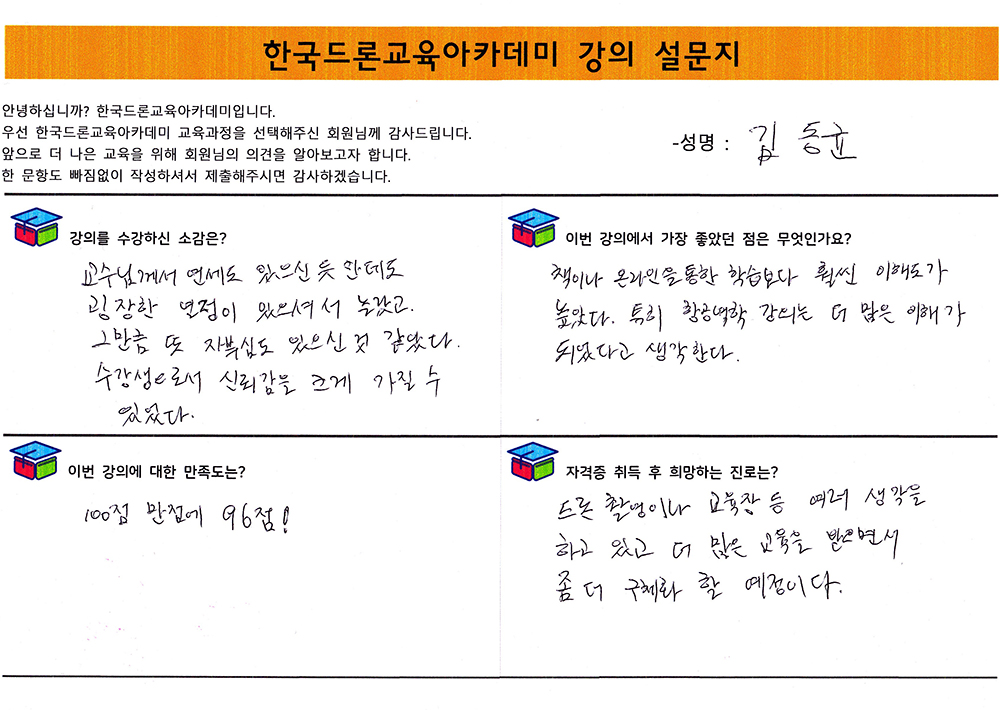 한국드론교육아카데미 강의 설문지
안녕하십니까? 한국드론교육아카데미입니다.
우선 한국드론교육아카데미 교육과정을 선택해주신 회원님께 감사드립니다.
앞으로 더 나은 교육을 위해 회원님의 의견을 알아보고자 합니다.
한 문항도 빠짐없이 작성하셔서 제출해주시면 감사하겠습니다.
-성명 : 김동균
강의를 수강하신 소감은?
교수님께서 연세도 있으신 듯 한데도
굉장한 열정이 있으셔서 놀랐고.
그만큼 또 자부심도 있으신 것 같았다.
수강생으로서 신뢰감을 크게 가질 수
있었다.
이번 강의에서 가장 좋았던 점은 무엇인가요?
책이나 온라인을 통한 학습보다 훨씬 이해도가
높았다. 특히 항공역학 강의는 더 많은 이해가
되었다고 생각한다.
이번 강의에 대한 만족도는?
100점 만점에 96점!
자격증 취득 후 희망하는 진로는?
드론 촬영이나 교육장 등 여러 생각을
하고 있고 더 많은 교육을 받으면서
좀 더 구체화 할 예정이다.